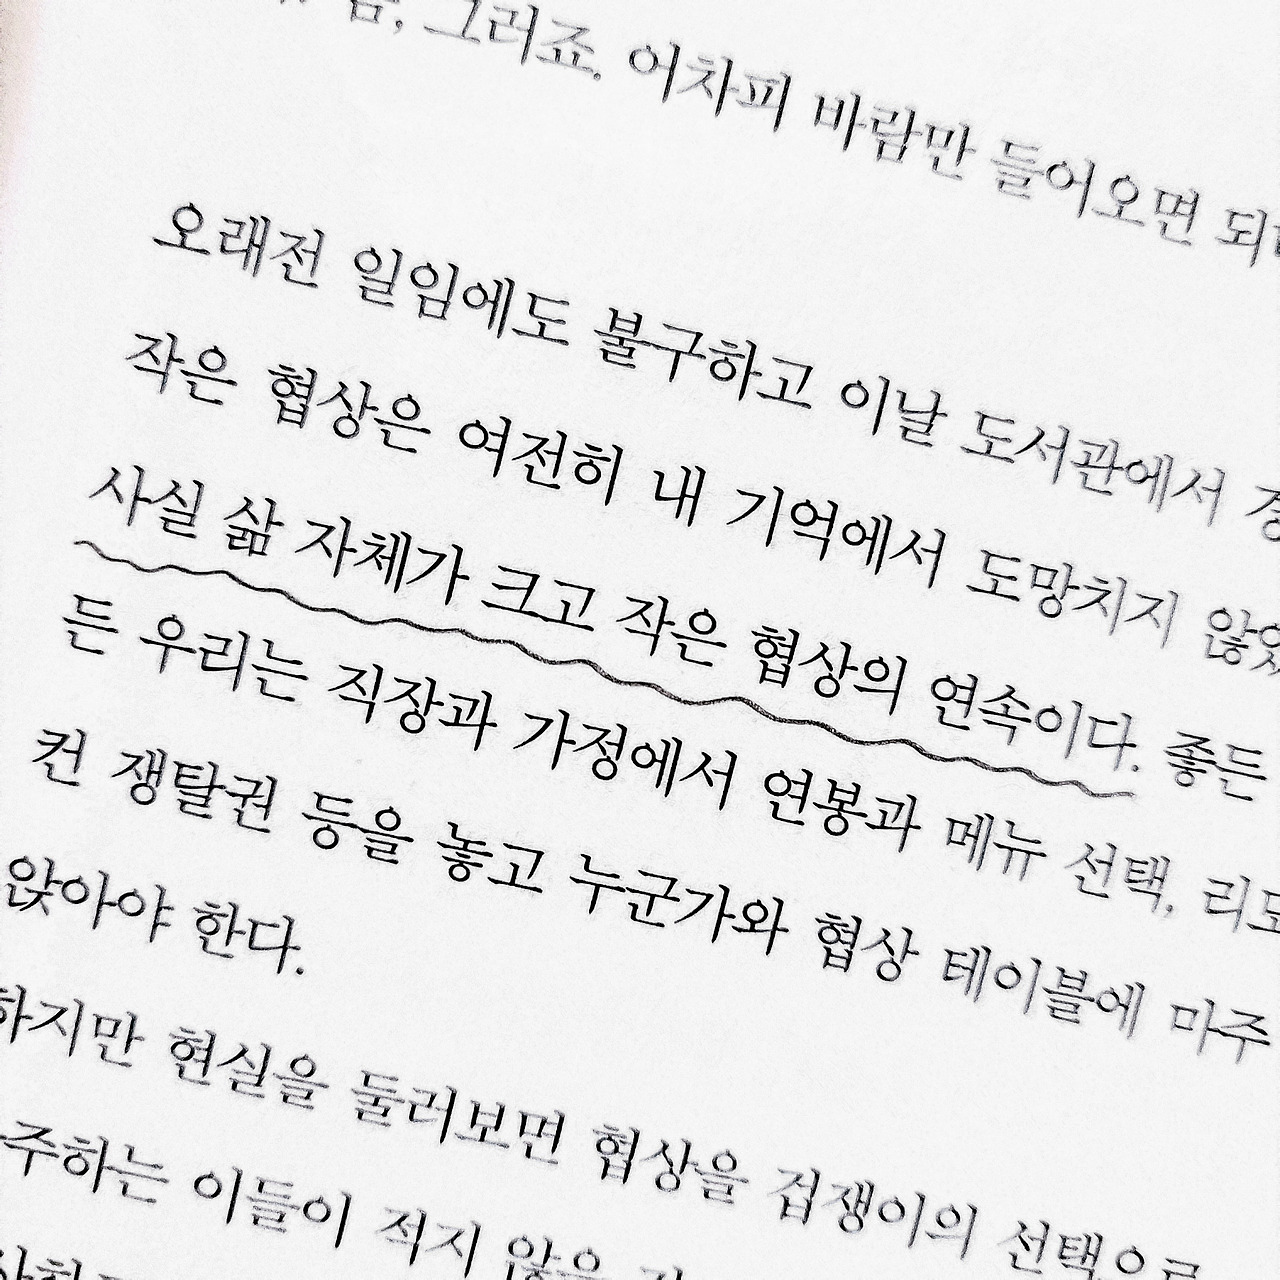 그러죠. 어차피 바람만 들어오면
오래전 일임에도 불구하고 이날 도서관에서
작은 협상은 여전히 내 기억에서 도망치지
사실 삶 자체가 크고 작은 협상의 연속이다. 좋든
든 우리는 직장과 가정에서 연봉과 메뉴 선택,
컨 쟁탈권 등을 놓고 누군가와 협상 테이블에 마주
앉아야 한다.
하지만 현실을 둘러보면 협상을 겁쟁이의
이들이 적지